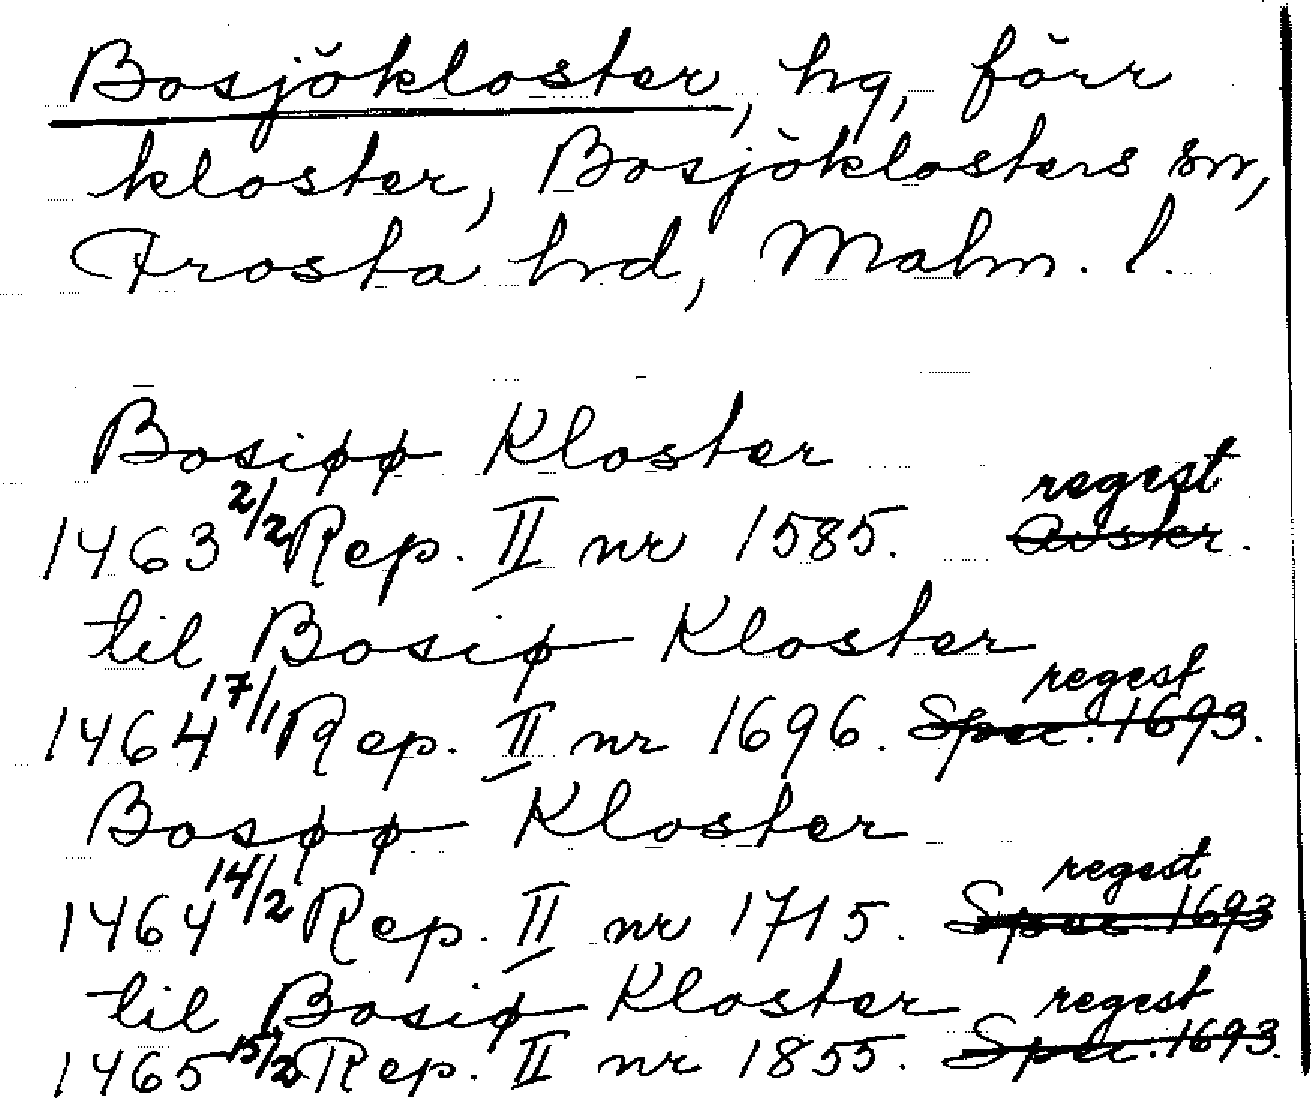 Bosjökloster, hg, förr
kloster, Bosjöklosters sn,
Frosta hrd, Malm. l.
Bosiøø Kloster
regest
1463 2/2 Rep. II nr 1585. Avskr.
til Bosiø Kloster
regest
1464 17/1 Rep. II nr 1696. Spec. 1693.
Bosøø Kloster
regest
1464 14/2 Rep. II nr 1715. Spec. 1693
til Bosiø Kloster regest
1465 15/2 Rep. II nr 1855. Spec. 1693.